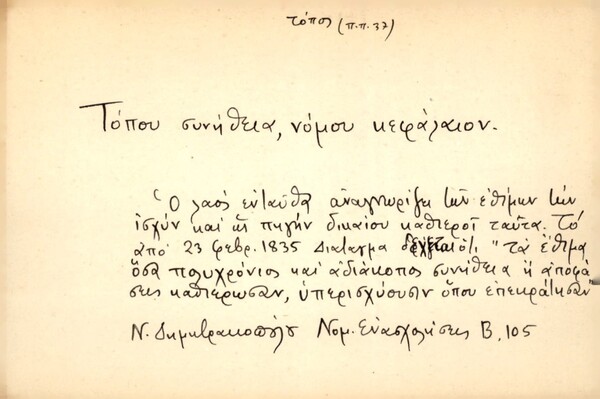 τόπος (π.π. 37)
Τόπου συνήθεια, νόμου κεφάλαιον.
Ὁ λαός ενταύθα ἀναγνωρίζει τῶν ἐθίμων τήν
ἰσχύν καί ὡς πηγήν δικαίου καθιεροῖ ταῦτα. Τό
ἀπό 23 φεβρ. 1835 Διαταγμα δέχεται ὅτι "τά ἔθιμα
ὅσα πολυχρόνιος καί ἀδιάκοπος συνήθεια ἤ ἀποφά
σεις καθιέρωσαν, ὑπερισχύουσιν ὅπου ἐπεκράτησαν"
Ν. Δημητρακοπούλου Νομ. Ενασχολήσεις Β, 105